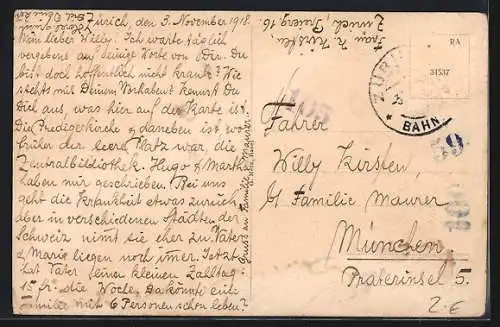 Zürich, den 3. November 1918.
Mein lieber Willy! Ich warte täglich
vergebens auf einige Worte von Dir. Du
bist doch hoffentlich nicht krank? Wie
stehts mit Deinem Vorhaben? Kennst Du
Dich aus, was hier auf der Karte ist.
Die Predigerkirche & daneben ist wo
früher der leere Platz war, die
Zentralbibliothek. Hugo & Martha
haben mir geschrieben. Bei uns
geht die Krankheit etwas zurück
aber in verschiedenen Städten der
Schweiz nimt sie eher zu. Vater
& Marie liegen noch imer. Jetzt
hat Vater seinen kleinen Zahltag:
15 fr. die Woche, da könnte eine
Familie mit 6 Personen schon leben?
Gruss an Familie Maurer.
Zürich 16.
ZÜRI
BAHN
RA
31537
105
59
Fahrer
Willy Kirsten,
b/ Familie Maurer
München
Praterinsel 5.
2.€